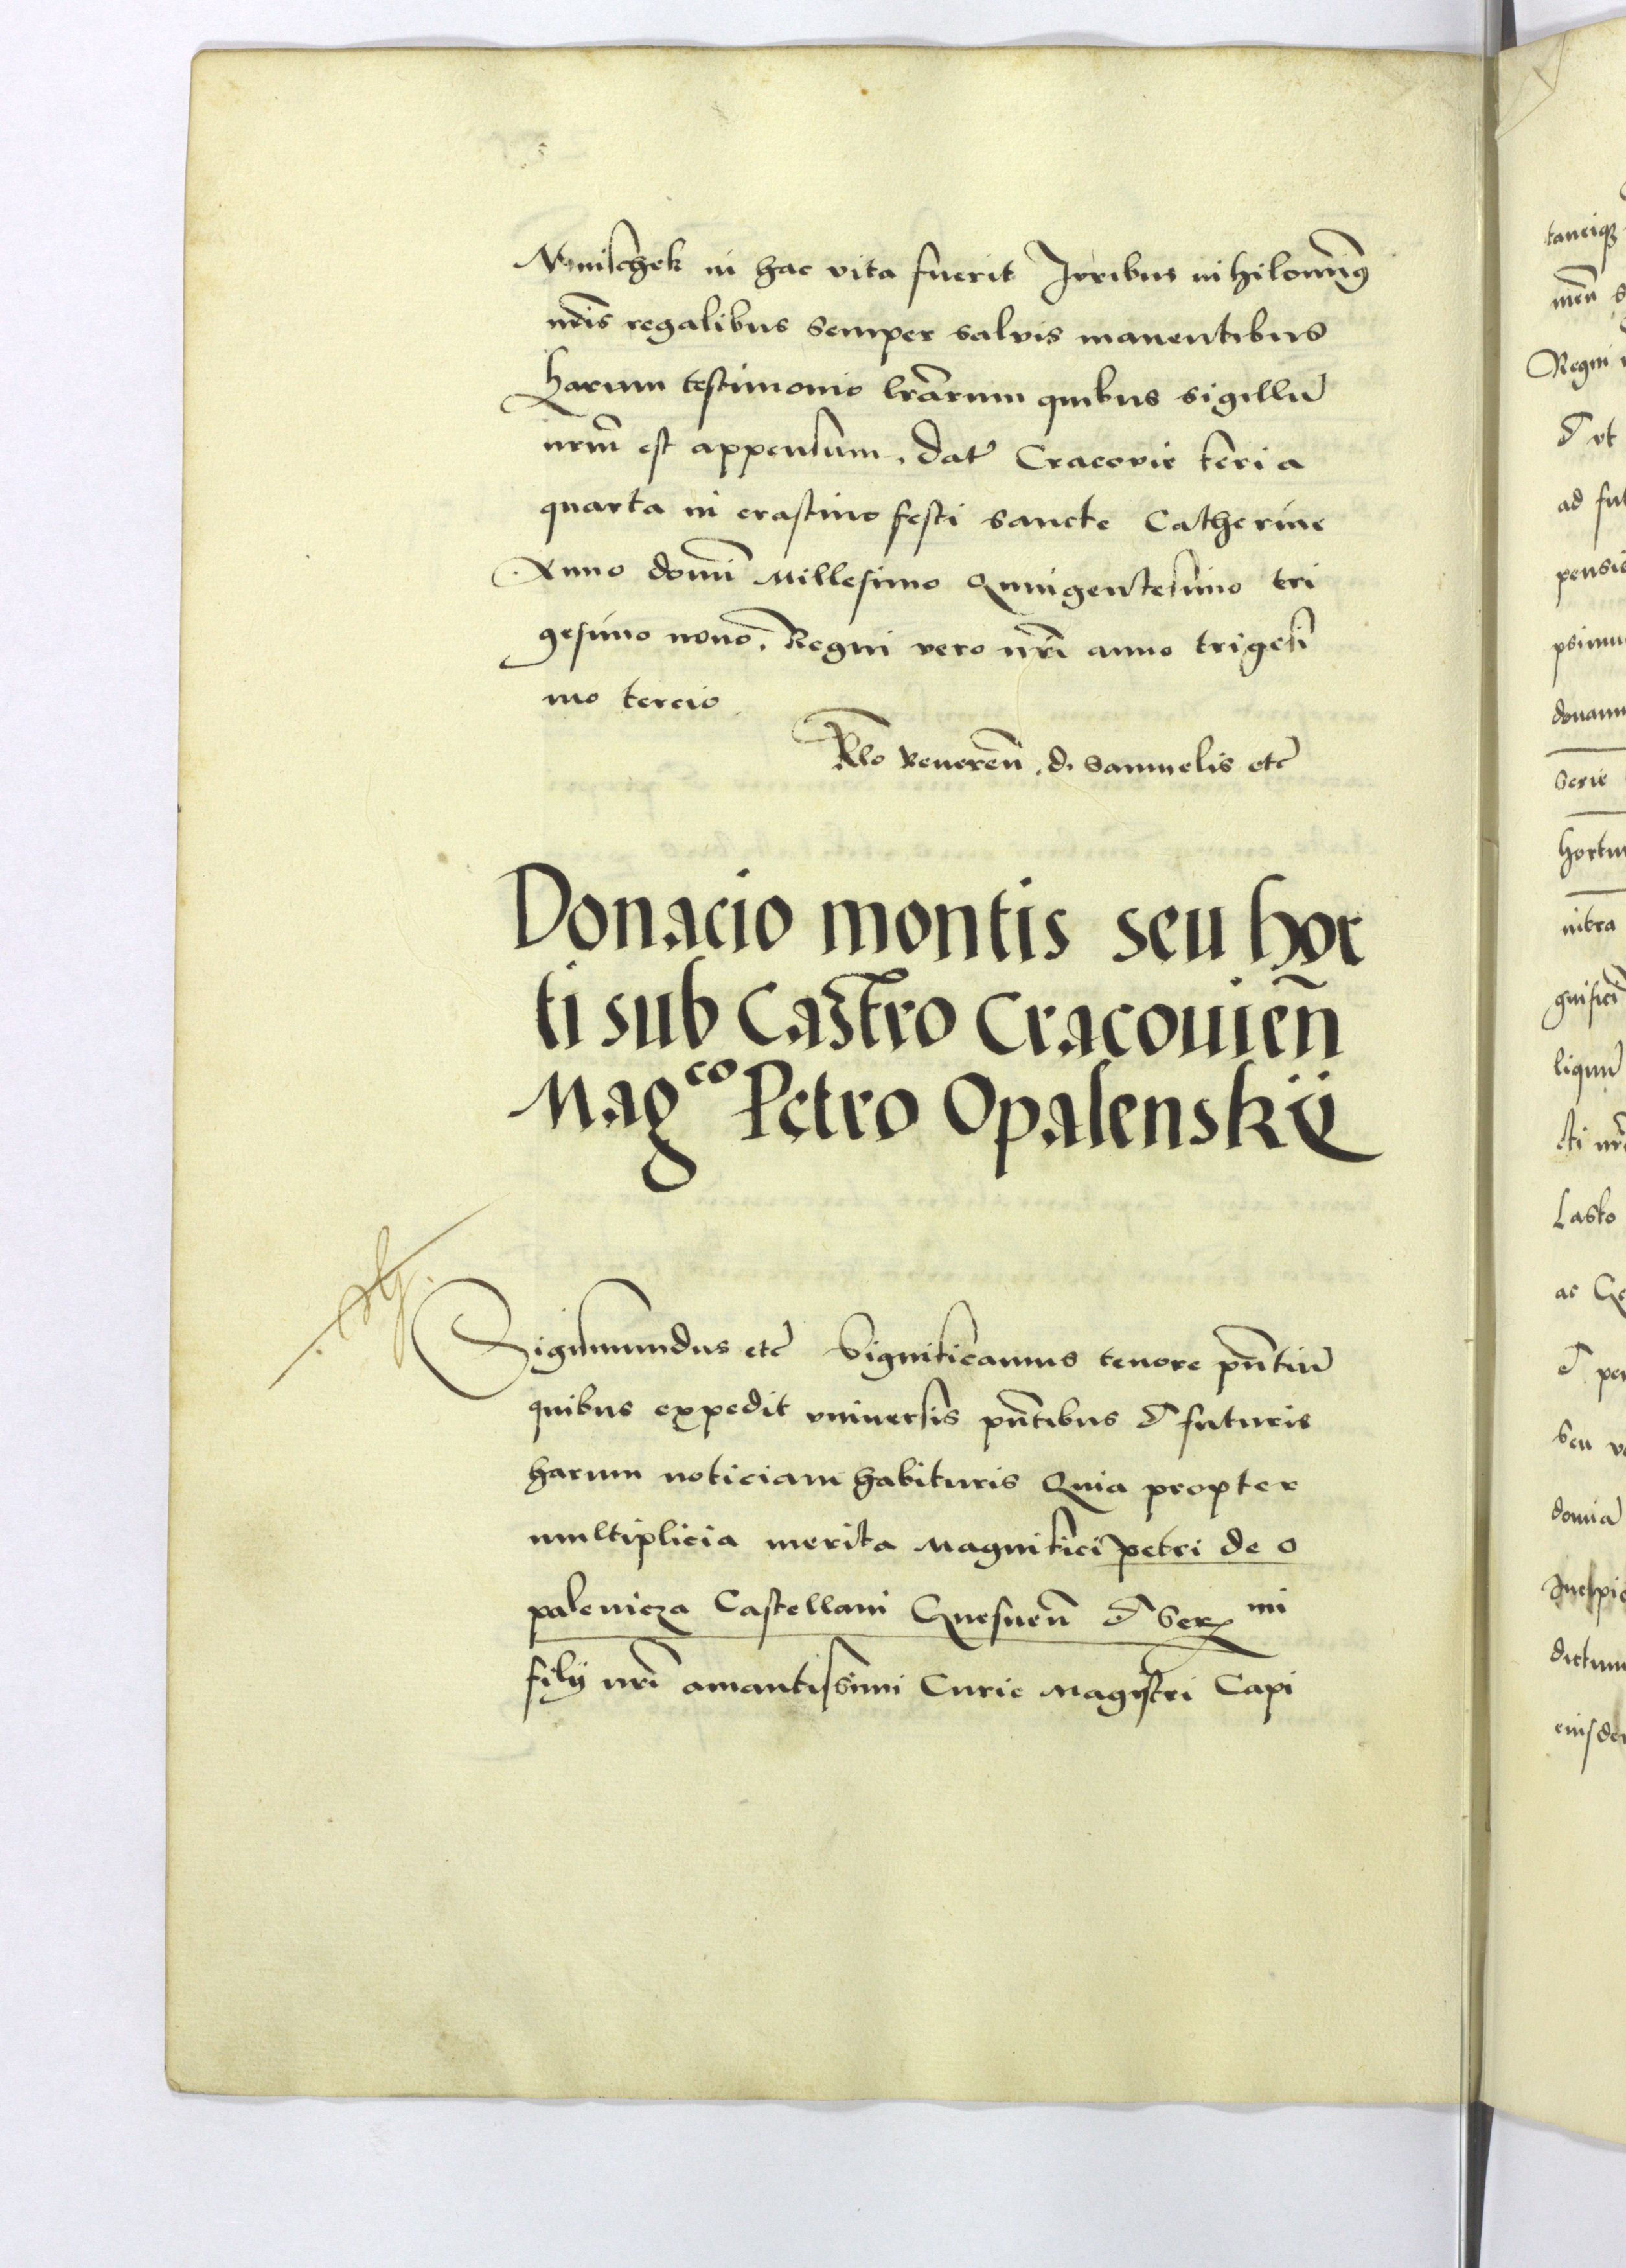 Mnischek in hac vita fuerit Iuribus nihilomiꝰ
nr̃is regalibus semper salvis manentibus
harum testimonio lr̃arum quibus sigillũ
nrm̃ est appensum. dat̃ Cracovie feria
quarta in crastino festi sancte Catherine
Anno domĩ Millesimo Quingentesimo tri
gesimo nono. Regni vero nr̃i anno trigesi
mo tercio
Rlo Reveren̄. d. Samuelis etc̃
Donacio montis seu hor
ti sub Castro Cracouien̄
Mag^co Petro Opalenskÿ
Sigismundus etc̃ Significamus tenore pn̄tiũ
quibus expedit vniversis pn̄tibus et futuris
harum noticiam habituris Quia propter
multiplicia merita Magnifici petri de O
palenicza Castellani Gnesnen̄ et Ser^mi
filÿ nr̃i amantissimi Curie Magistri Capi
taneiqꝫ
men̄
Regni
et vt
ad fut
pensis
psimu
donam
Serie
hortu
intra
gnifici
liquũ
cti nr̃
Lasko
ac Ge
et per
seu v
domiã
Inchpic
dictum
eiusde